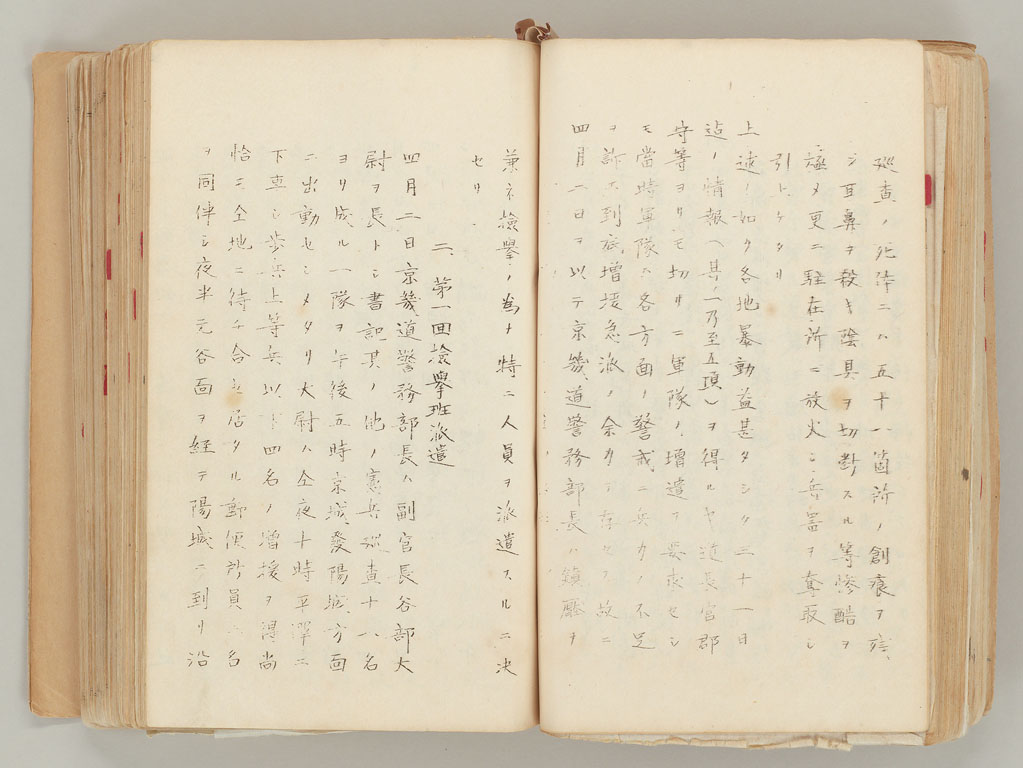 巡査ノ死体ニハ五十八箇所ノ創痕ヲ残
シ耳鼻ヲ殺キ陰具ヲ切断スル等惨酷ヲ
極メ更ニ駐在所ニ放火シ兵器ヲ奪取シ
引上ケタリ
上述ノ如ク各地暴動益甚タシク三十一日
迄ノ情報(其ノ一乃至五項)ヲ得ルヤ道長官郡
守等ヨリモ切リニ軍隊ノ増遣ヲ要求セシ
モ当時軍隊ハ各方面ノ警戒ニ兵力ノ不足
ヲ訴ヘ到底増援急派ノ余力ヲ有セス故ニ
四月一日ヲ以テ京畿道警務部長ハ鎮圧ヲ
兼ネ検挙ノ為ナ特ニ人員ヲ派遣スルニ決
セリ
二、第一回検挙班派遣
四月二日京畿道警務部長ハ副官長谷部大
尉ヲ長トシ書記其ノ他ノ憲兵巡査十八名
ヨリ成ル一隊ヲ午後五時京城発陽城方面
ニ出動セシメタリ大尉ハ仝夜十時平沢ニ
下車シ歩兵上等兵以下四名ノ増援ヲ得尚
恰モ仝地ニ待チ合セ居タル郵便所員 名
ヲ同伴シ夜半元谷面ヲ経テ陽城ニ到リ沿